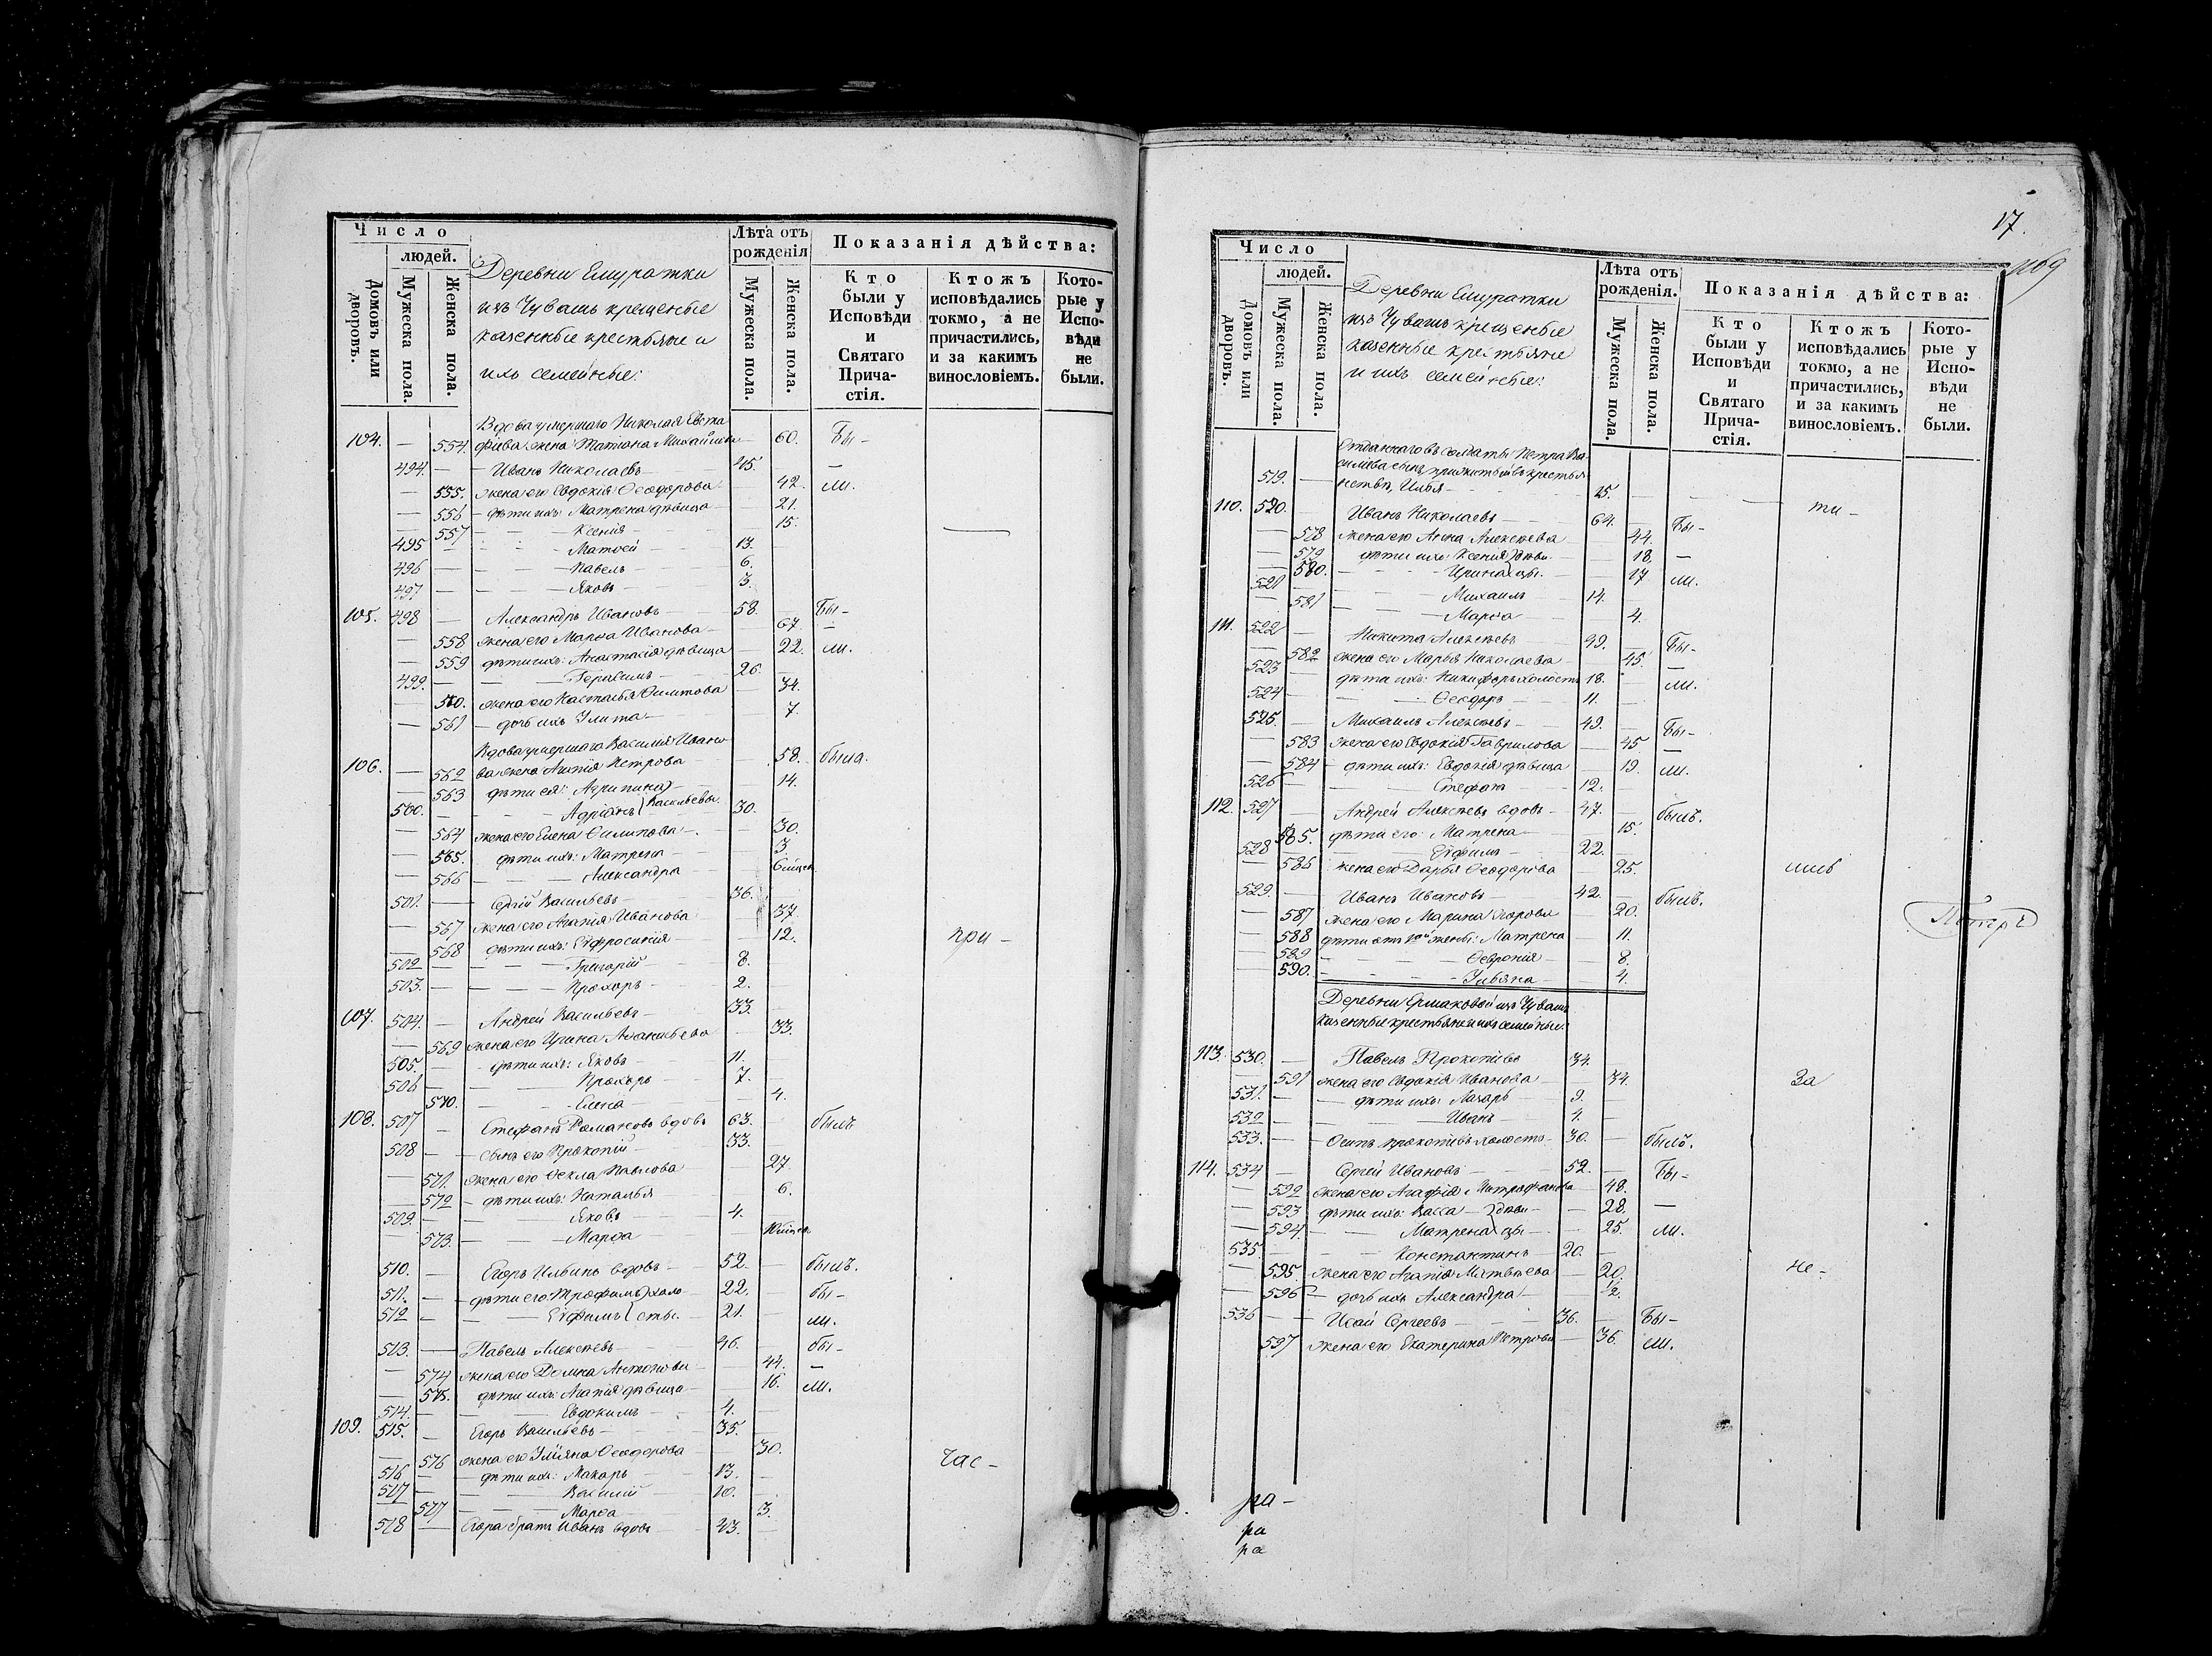 Число
людей.
Домовъ или дворовъ.
Мужеска пола.
Женска пола.
Деревни Емуратки
изъ Чувашъ крещеные
казенные крестьяне и
ихъ семейные:
Лѣта отъ рожденія
Мужеска пола.
Женска пола.
Показанія дѣйства:
Кто были у Исповѣди и Святаго Прича-стія.
Ктожъ исповѣдались токмо, а не причастились, и за какимъ винословіемъ.
Кото-рые у Испо-вѣди не были.
Вдова умершаго Николая Евста
104. — 554. фіева жена Татіана Михайлова — 60. Бы-
494. — Иванъ Николаевъ — 45. —
— 555. жена его Евдокія Ѳеодорова — 42. ли.
— 556 — дѣти ихъ: Матрена дѣвица — 21.
— 557 — Ксенія — 15.
495 — Матвей — 13.
496 — Павелъ — 6.
497 — Яковъ — 3.
105. 498 — Александръ Ивановъ — 58. Бы-
— 558 жена его Марѳа Иванова — 67. —
— 559 дѣти ихъ: Анастасія дѣвица — 22. ли.
499. — Герасимъ — 26.
— 560. жена его Настасья Филипова — 34.
— 561 — дочь ихъ Улита — 7.
Вдова умершаго Василія Ивано
106. — 562 ва жена Агапія Петрова — 58. была.
— 563 дѣти ея: Агрипина — 14.
500. — Адріянъ Васильевы. 30.
— 564 жена его Елена Филипова — 30.
— 565. дѣти ихъ: Матрена — 3
— 566 — Александра — 6 мѣсец.
501. — Сергій Васильевъ — 36.
— 567 жена его Агапія Иванова — 37.
— 568 дѣти ихъ: Евфросинія — 12. при-
502 — Григорій — 8.
503. — Прохоръ — 2.
107. 504. — Андрей Васильевъ — 33.
— 569 жена его Ирина Афанасьева — 33.
505. — дѣти ихъ: Яковъ — 11.
506 — Прохоръ — 7.
570. — Елена — 4.
108. 507 — Стефанъ Романовъ вдовъ 63. — былъ
508 — сынъ его Прокопій — 33.
— 571. жена его Ѳекла Павлова — 27.
— 572 — дѣти ихъ: Наталья — 6.
509. — Яковъ — 4.
— 573. — Марѳа — 10 мѣсец.
510. — Егоръ Ильинъ вдовъ — 52. — былъ.
511. — дѣти его: Трофимъ холо- 22. — бы-
512 — Евфимъ сты. — 21. ли.
513. — Павелъ Алексѣевъ — 46. — бы-
— 574 жена его Домна Антонова — 44. —
— 575. дѣти ихъ: Агапія дѣвица — 16. ли.
514. — Евдокимъ — 4.
109. 515. — Егоръ Васильевъ — 35.
— 576 жена его Уліяна Ѳеодорова — 30.
516 — дѣти ихъ: Макаръ — 13. час-
517 — Василій — 10.
— 577 — Марѳа — 3.
518 — Егора братъ Иванъ вдовъ — 43.
17.
1169
Число
людей.
Домовъ или дворовъ.
Мужеска пола.
Женска пола.
Деревни Емуратки
изъ Чувашъ крещеные
казенные крестьяне
и ихъ семейные:
Лѣта отъ рожденія.
Мужеска пола.
Женска пола.
Показанія дѣйства:
Кто были у Исповѣди и Святаго Прича-стія.
Ктожъ исповѣдались токмо, а не причастились, и за какимъ винословіемъ.
Кото-рые у Испо-вѣди не были.
Отданнаго въ солдаты Петра Ва-
силева сынъ, прижитый въ крестья
519. — нствѣ, Илья — 15.
110. 520. — Иванъ Николаевъ — 64. Бы- ти-
— 578 жена его Анна Алексѣева — 44.
— 579 дѣти ихъ: Ксенія дѣви- — 18. —
— 580. — Ирина цы. — 17 ли.
521 — Михаилъ — 14.
— 581 — Марѳа — 4.
111. 522 — Никита Алексѣевъ — 49. — Бы-
— 582 жена его Марья Николаева — 45. —
523 — дѣти ихъ: Никифоръ холостъ 18. — ли.
524 — Ѳеодоръ — 11.
525. — Михаилъ Алексѣевъ — 49. — Бы-
— 583 жена его Евдокія Гаврилова — 45 —
— 584 — дѣти ихъ: Евдокія дѣвица — 19. ли.
526 — Стефанъ — 12.
112. 527 — Андрей Алексѣевъ вдовъ — 47. — былъ.
585. дѣти его: Матрена — 15.
528 — Евфимъ — 22.
— 586 жена его Дарья Ѳеодорова — 25.
529. — Иванъ Ивановъ — 42. — былъ.
— 587 жена его Марина Егорова — 20.
— 588 дѣти отъ 1ой жены: Матрена — 11.
— 589 — Ѳевронія — 8.
— 590. — Ульяна — 4.
Деревни Ермаковой изъ Чувашъ
казенные крестьяне и ихъ семейные:
113. 530. — Павелъ Прокопіевъ 34.
— 591 жена его Евдокія Иванова — 34. За
531. — дѣти ихъ: Лазарь — 9.
532 — Иванъ — 4.
533. — Осипъ Прокопіевъ холостъ — 30. — былъ.
114. 534 — Сергей Ивановъ — 52. — Бы-
— 592 жена его Агафія Митрофанова — 48.
— 593 дѣти ихъ: Васса — дѣви- — 28. —
— 594. — Матрена цы — 25. ли.
535 — Константинъ — 20.
— 595. жена его Агапія Матвѣева — 20. не-
— 596 — дочь ихъ Александра — ½.
536 — Исай Сергеевъ — 36. — Бы-
597 жена его Екатерина Петрова — 36. ли.
ра-
ра
ра